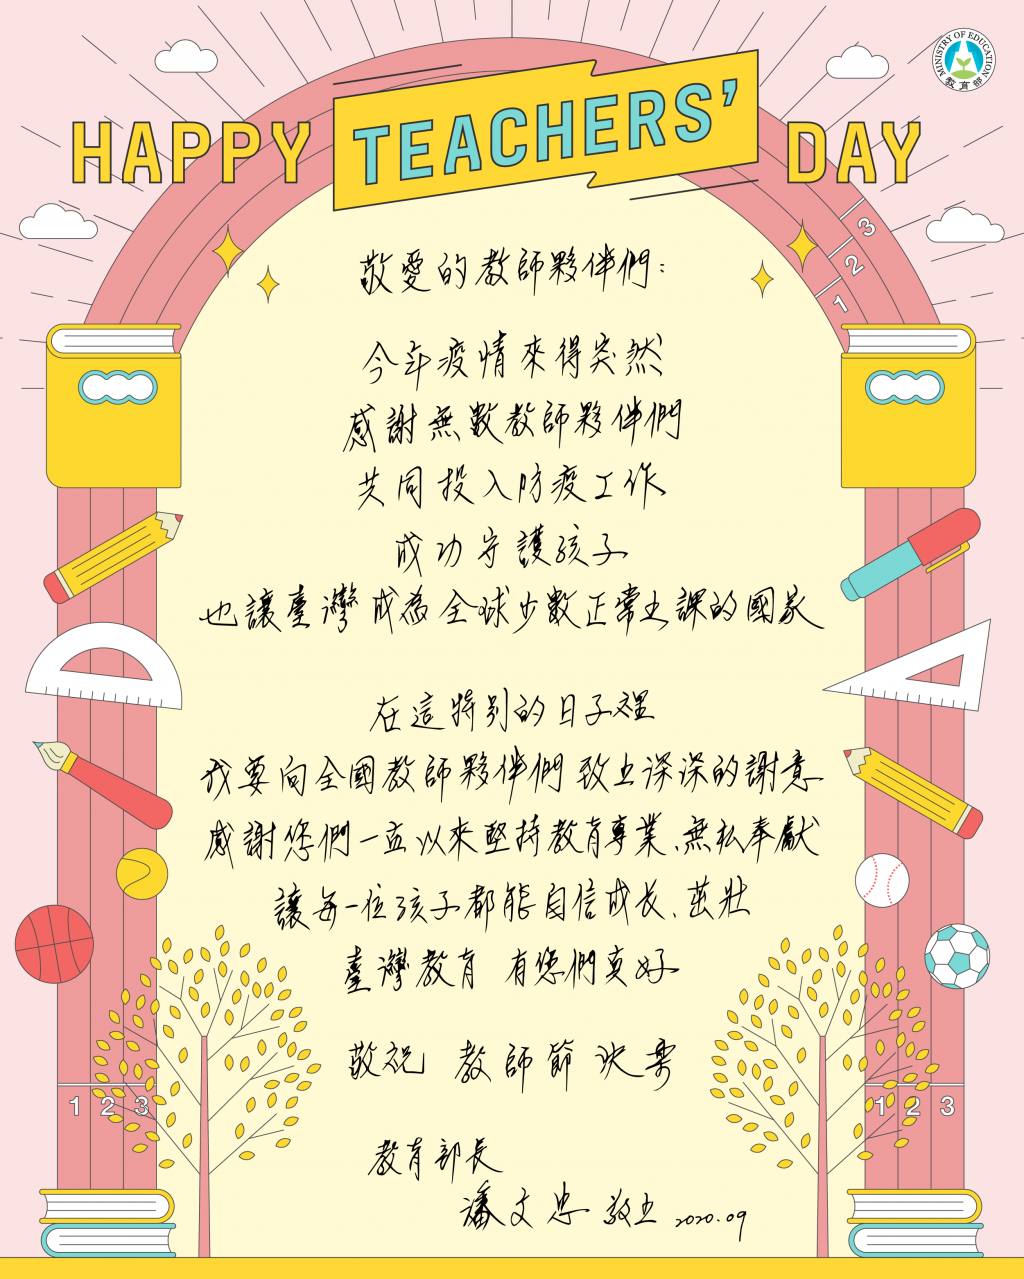 MINISTRY OF EDUCATION
教育部
HAPPY TEACHERS' DAY
3
2
1
敬愛的教師夥伴們：
今年疫情來得突然
感謝無數教師夥伴們
共同投入防疫工作
成功守護孩子
也讓臺灣成為全球少數正常上課的國家
在這特別的日子裡
我要向全國教師夥伴們致上深深的謝意
感謝您們一直以來堅持教育專業、無私奉獻
讓每一位孩子都能自信成長、茁壯
臺灣教育 有您們真好
敬祝 教師節快樂
1 2 3
1 2 3
教育部長
潘文忠 敬上 2020.09